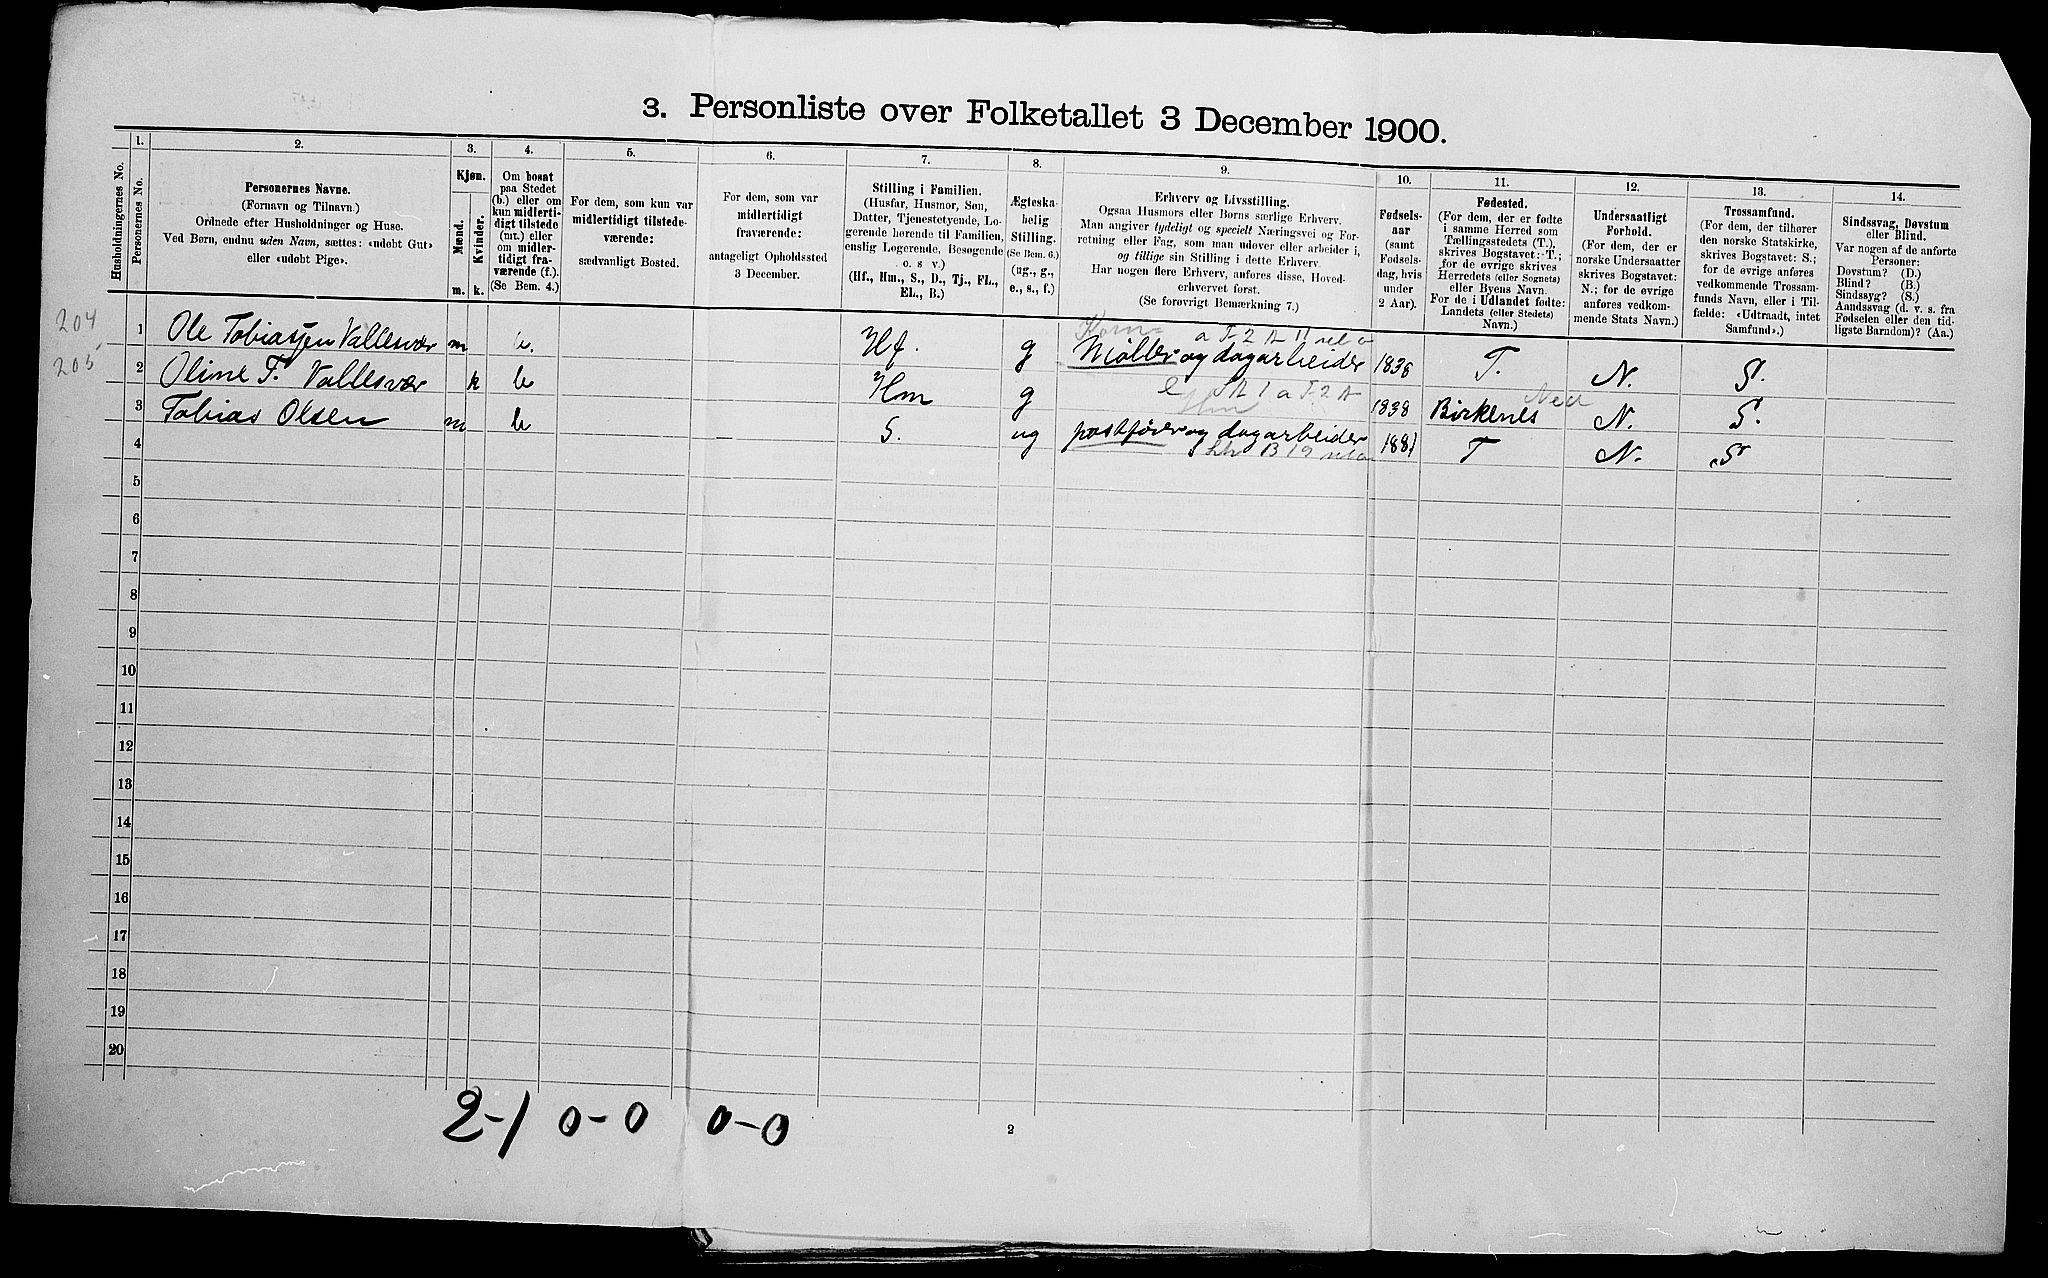 3. Personliste over Folketallet 3 December 1900.
Husholdningernes No.
1.
Personernes No.
2.
Personernes Navne.
(Fornavn og Tilnavn.)
Ordnede efter Husholdninger og Huse.
Ved Børn, endnu uden Navn, sættes: «udøbt Gut»
eller «udøbt Pige».
3.
Kjøn.
Mænd.
Kvinder.
m.
k.
4.
Om bosat
paa Stedet
(b.) eller om
kun midlerti-
digt tilstede
(mt.) eller
om midler-
tidigt fra-
værende (f.).
(Se Bem. 4.)
5.
For dem, som kun var
midlertidigt tilstede-
værende:
sædvanligt Bosted.
6.
For dem, som var
midlertidigt
fraværende:
antageligt Opholdssted
3 December.
7.
Stilling i Familien.
(Husfar, Husmor, Søn,
Datter, Tjenestetyende, Lo-
gerende hørende til Familien,
enslig Logerende, Besøgende
o. s v.)
(Hf., Hm., S., D., Tj., FL.,
EL., B.)
8.
Ægteska-
belig
Stilling.
(Se Bem. 6.)
(ug., g.,
e., s., f.)
9.
Erhverv og Livsstilling.
Ogsaa Husmors eller Børns særlige Erhverv.
Man angiver tydeligt og specielt Næringsvei og For-
retning eller Fag, som man udøver eller arbeider i,
og tillige sin Stilling i dette Erhverv.
Har nogen flere Erhverv, anføres disse, Hoved-
erhvervet først.
(Se forøvrigt Bemærkning 7.)
10.
Fødsels-
aar
(samt
Fødsels-
dag, hvis
under
2 Aar).
11.
Fødested.
(For dem, der er fødte
i samme Herred som
Tællingsstedets (T.),
skrives Bogstavet: T.;
for de øvrige skrives
Herredets (eller Sognets)
eller Byens Navn.
For de i Udlandet fødte:
Landets (eller Stedets)
Navn.)
12.
Undersaatligt
Forhold.
(For dem, der er
norske Undersaatter
skrives Bogstavet:
N.; for de øvrige
anføres vedkom-
mende Stats Navn.)
13.
Trossamfund.
(For dem, der tilhører
den norske Statskirke,
skrives Bogstavet: S.;
for de øvrige anføres
vedkommende Trossam-
funds Navn, eller i Til-
fælde: «Udtraadt, intet
Samfund».)
14.
Sindssvag, Døvstum
eller Blind.
Var nogen af de anførte
Personer:
Døvstum? (D.)
Blind? (B.)
Sindssyg? (S.)
Aandssvag (d. v. s. fra
Fødselen eller den tid-
ligste Barndom)? (Aa.)
Korn- a F-2 A
204 1 Ole Tobiassen Vallesvær m b. Hf. g Møller og dagarbeider 1838 T. N. S.
205 2 Oline T. Vallesvær k b Hm g 1838 Birkenes Ned N. S.
3 Tobias Olsen m b S. ug postfører og dagarbeider 1881 T N. S
4
5
6
7
8
9
10
11
12
13
14
15
16
17
18
19
20
2-1 0-0 0-0
2